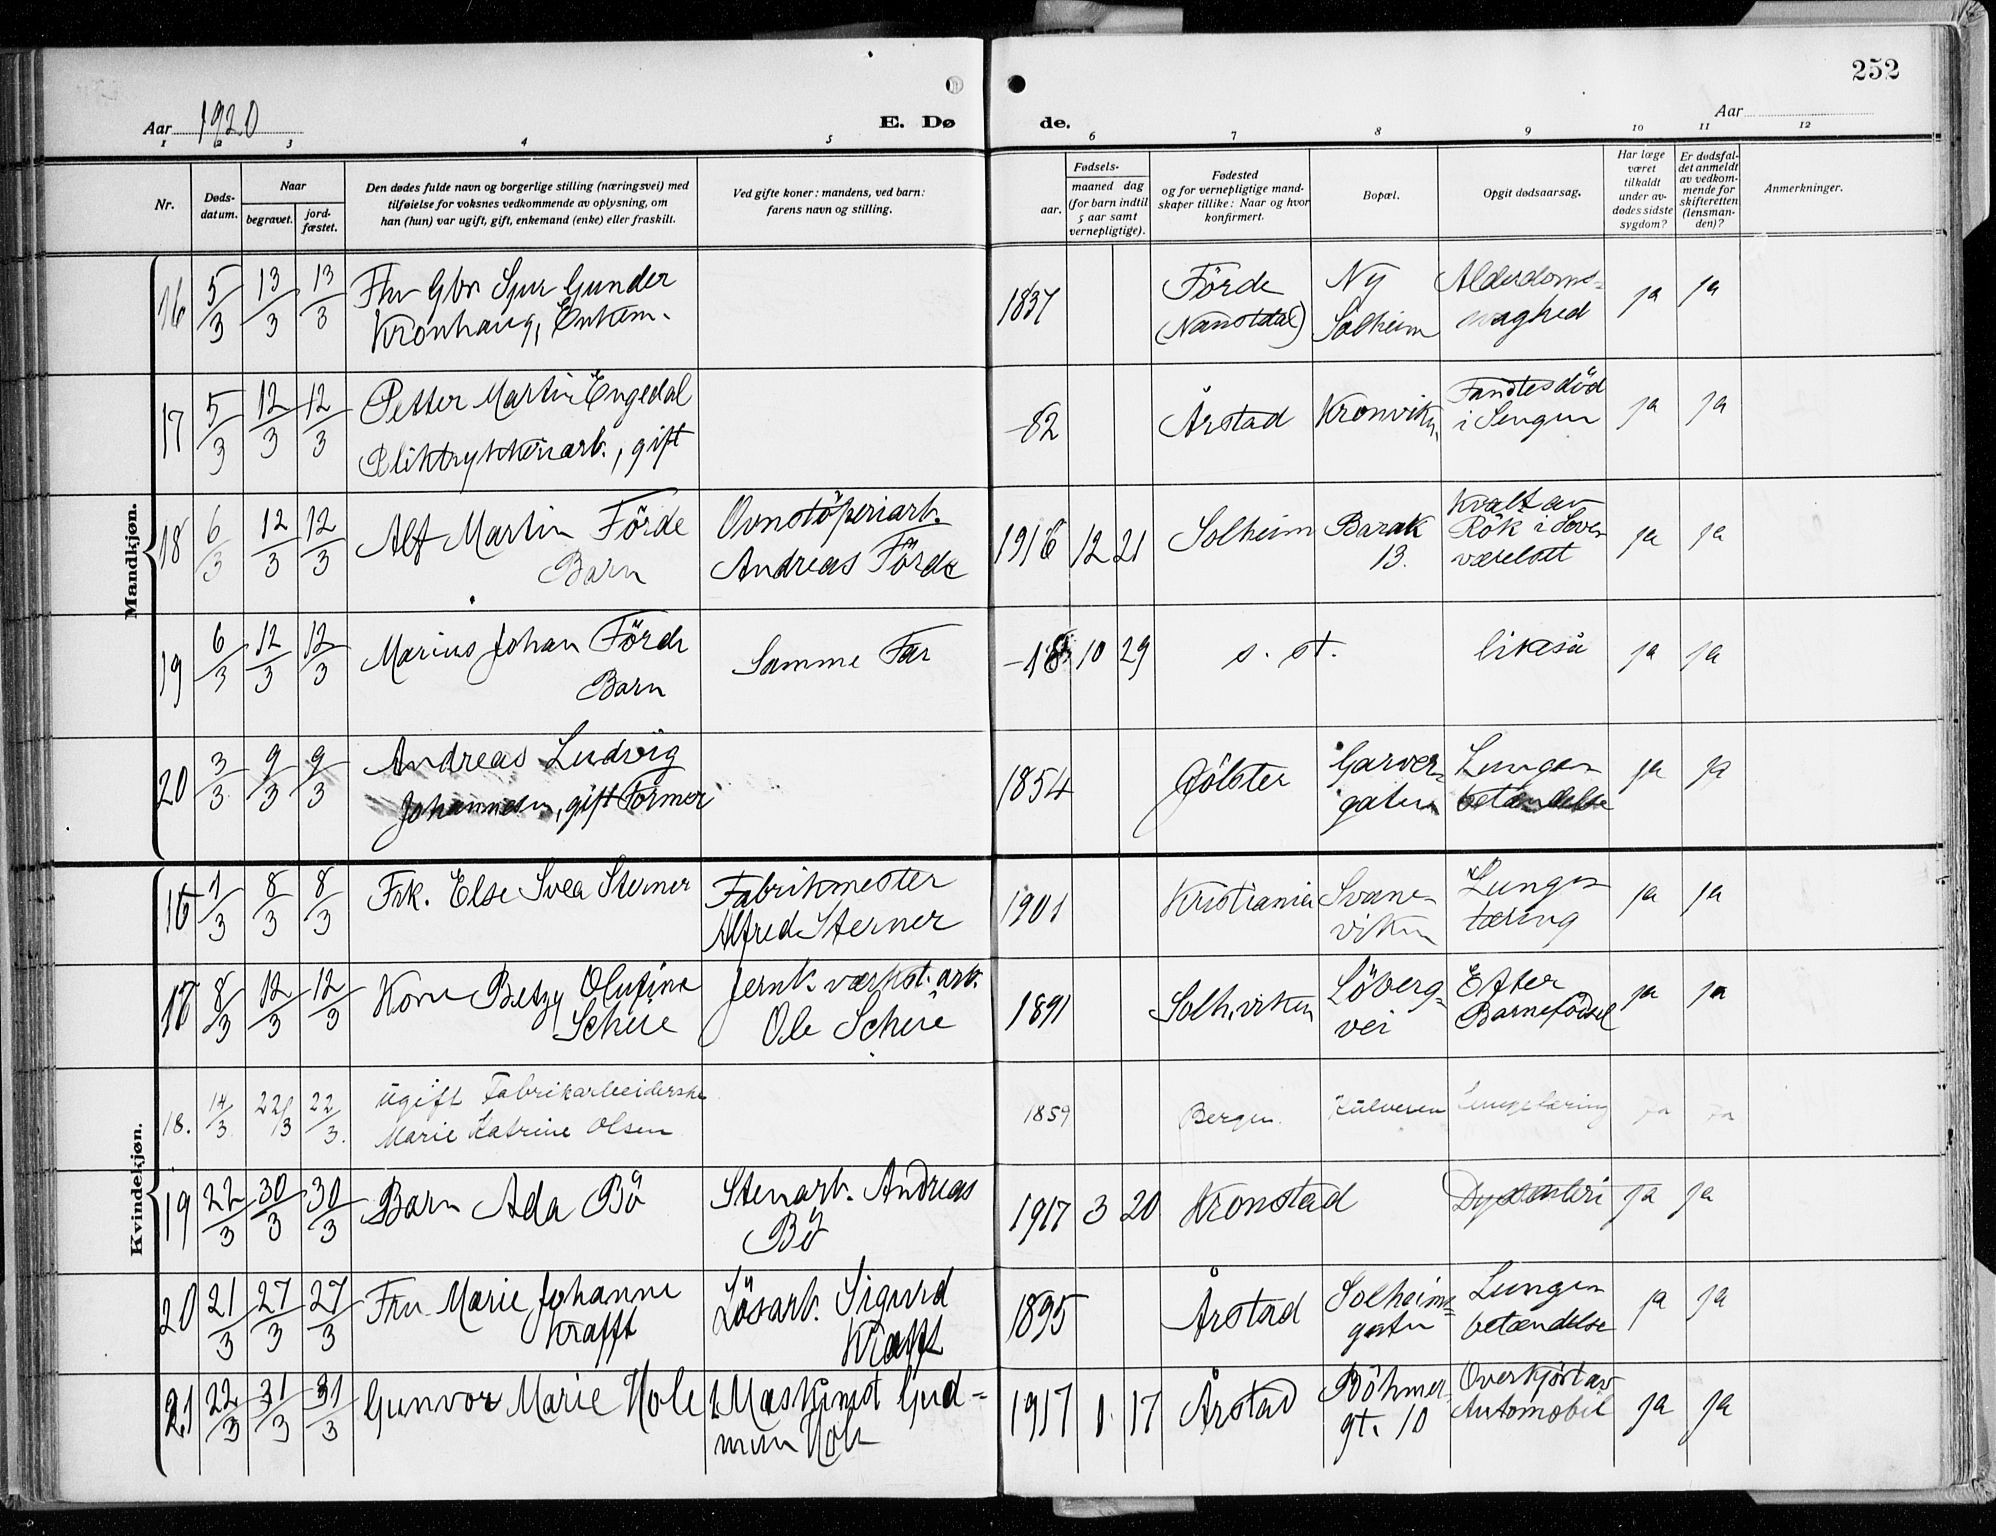 252
Aar 1920
E. Dø
de.
Aar
1 2 3 4 5 6 7 8 9 10 11 12
Nr.
Døds-
datum.
Naar
begravet.
jord-
fæstet.
Den dødes fulde navn og borgerlige stilling (næringsvei) med
tilføielse for voksnes vedkommende av oplysning, om
han (hun) var ugift, gift, enkemand (enke) eller fraskilt.
Ved gifte koner: mandens, ved barn:
farens navn og stilling.
Fødsels-
aar.
maaned dag
(for barn indtil
5 aar samt
vernepligtige).
Fødested
og for vernepligtige mand-
skaper tillike: Naar og hvor
konfirmert.
Bopæl.
Opgit dødsaarsag.
Har læge
været
tilkaldt
under av-
dødes sidste
sygdom?
Er dødsfal-
det anmeldt
av vedkom-
mende for
skifteretten
(lensman-
den)?
Anmerkninger.
Mandkjøn.
16 5/3 13/3 13/3 Fhv Gbr Sjur Gunder
Kronhaug, Enkem.
1837
Förde
(Naustdal)
Ny
Solheim
Alderdoms-
svaghed
ja ja
17 5/3 12/3 12/3 Petter Martin Engedal
Bliktrykkeriarb., gift
-82 Årstad Kronvikn.
Fandtes död
i Sengen
ja ja
18 6/3 12/3 12/3 Alf Martin Förde
Barn
Ovnstöperiarb.
Andreas Förde
1916 12 21 Solheim
Barak
13.
Kvalt av
Rök i Sove-
værelset
ja ja
19 6/3 12/3 12/3 Marius Johan Förde
Barn
Samme Far
-18 10 29 s. st. likeså ja ja
20 3/3 9/3 9/3 Andreas Ludvig
Johannesen, gift Former
1854 Jölster
Garver-
gaten
Lungen
betændelse
ja ja
Kvindekjøn.
16 1/3 8/3 8/3 Frk. Else Svea Sterner
Fabrikmester
Alfred Sterner
1901 Kristiania
Svane-
viken
Lunge-
tæring
ja ja
17 8/3 12/3 12/3 Kone Betzy Olufine
Scheie
Jernk. værkst. arb.
Ole Scheie
1891 Solh.viken
Löberg-
vei
Efter
Barnefödsel
ja ja
18. 14/3 22/3 22/3. ugift Fabrikarbeiderske
Marie Katrine Olsen
1859 Bergen. Lungetæring ja ja
19 22/3 30/3 30/3 Barn Ada Bö
Stenarb. Andreas
Bö
1917 3 20 Kronstad Dysenteri ja ja
20 21/3 27/3 27/3 Fru Marie Johanne
Krafft
Lösarb. Sigurd
Krafft
1895 Årstad
Solheims-
gaten
Lungen
betændelse
ja ja
21 22/3 31/3 31/3 Gunvor Marie Hole
Maskinist Gud-
mun Hole
1917 1. 17 Årstad
Böhmer
gt. 10
Overkjört av
Automobil
ja ja